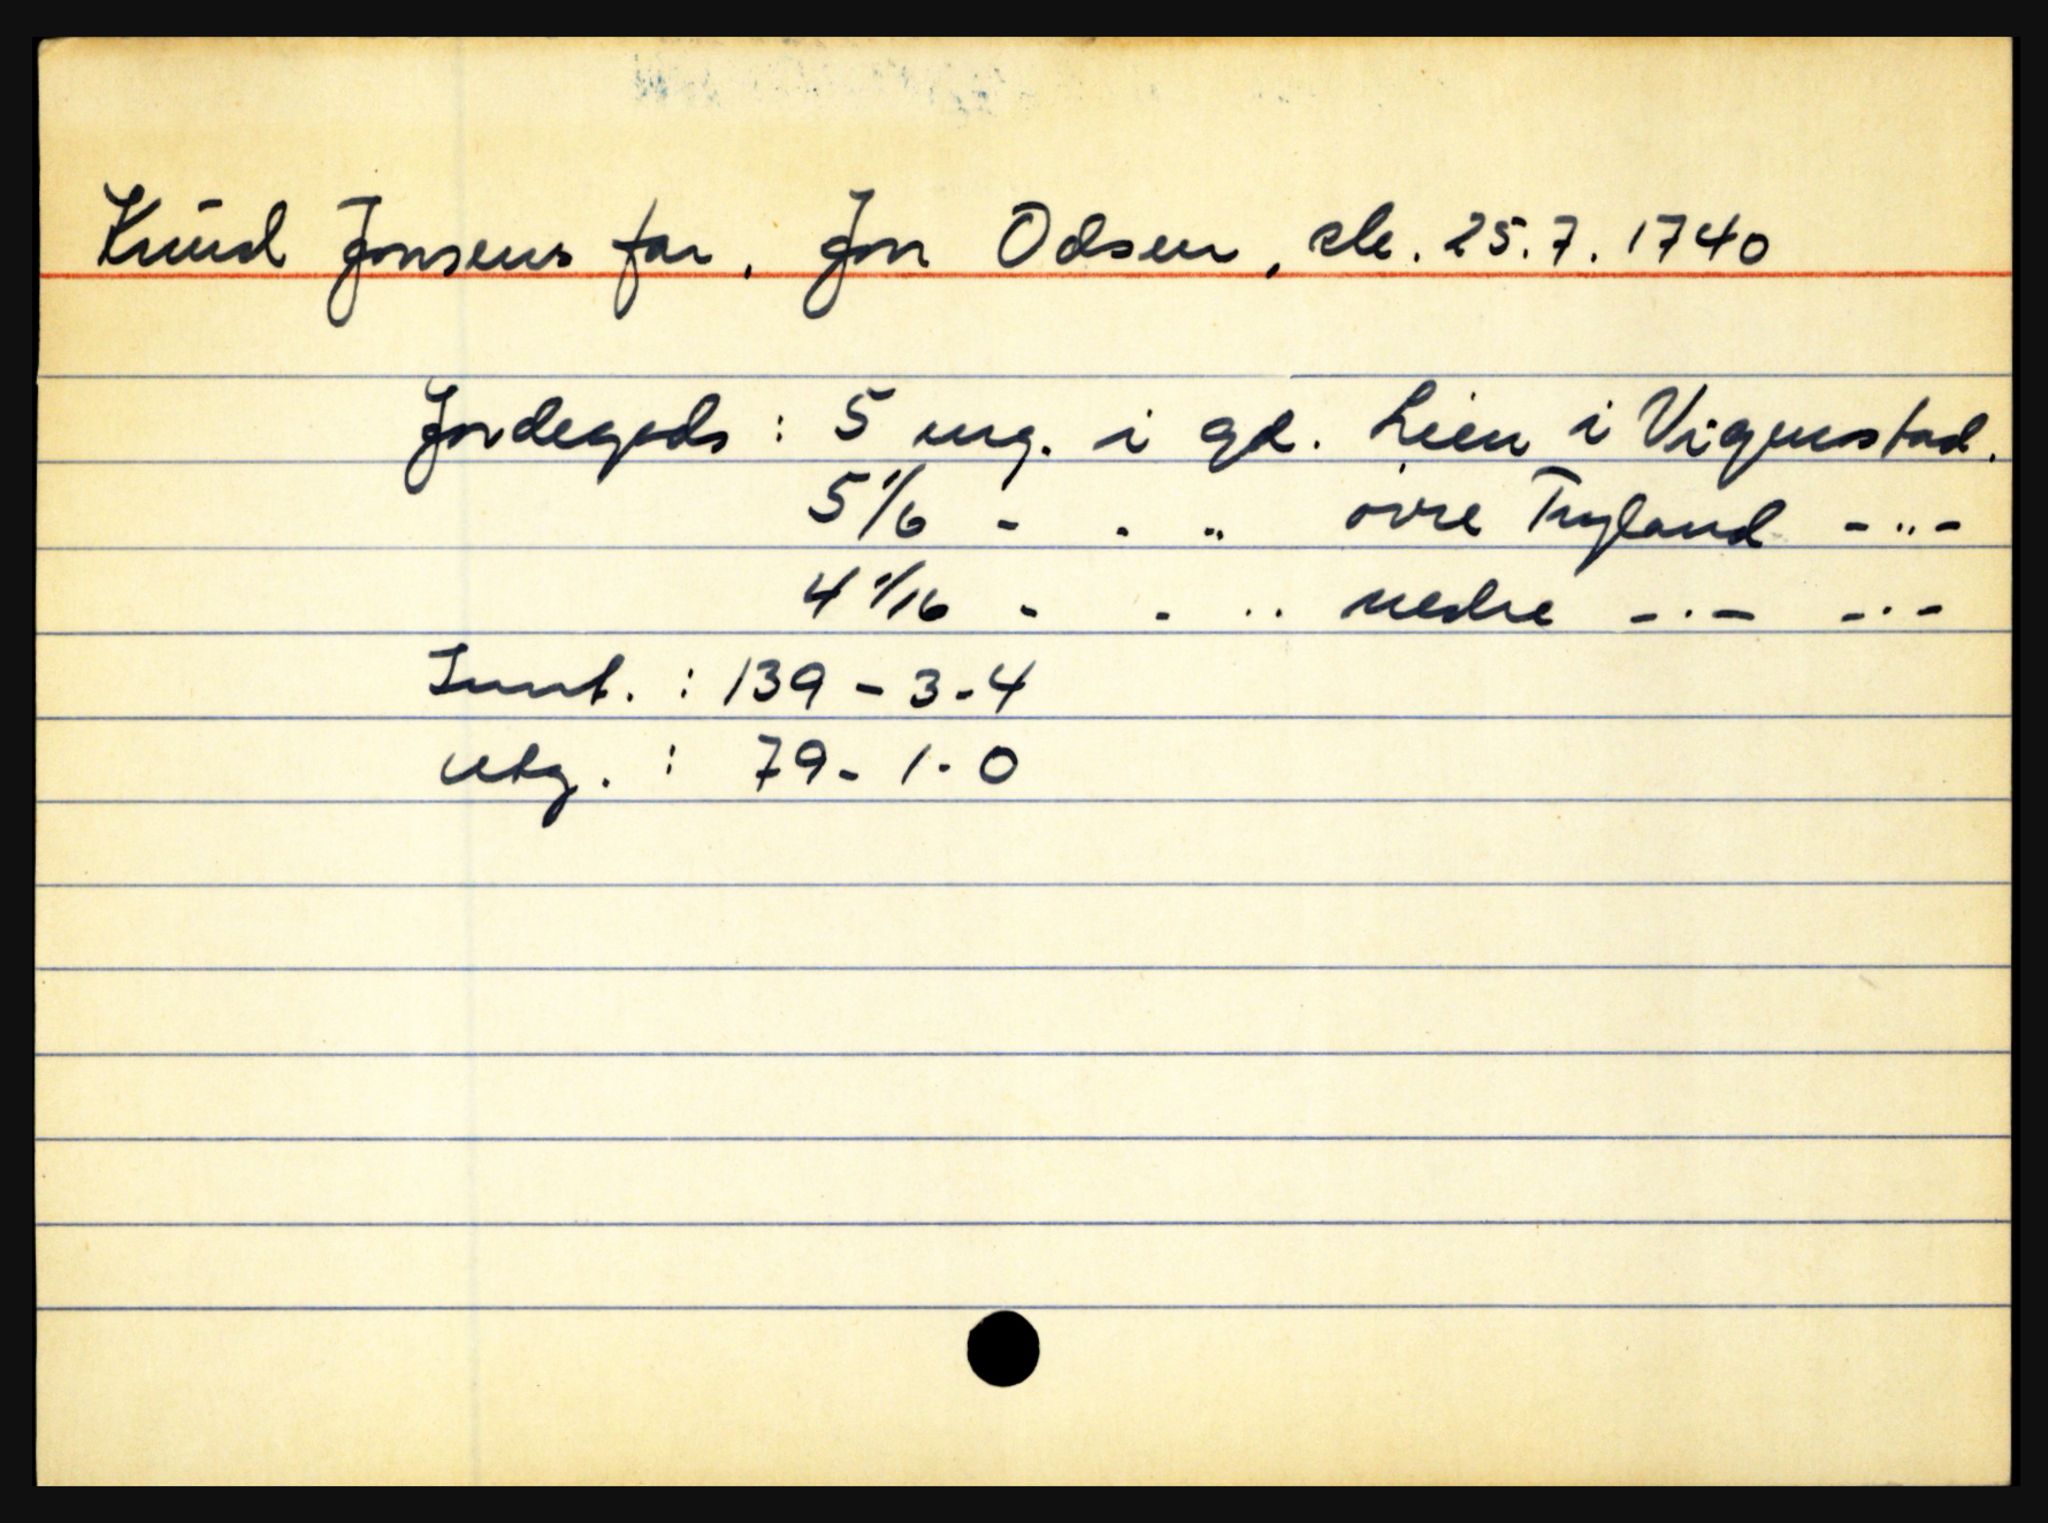 Knud Jonsens far, Jon Odsen, sk. 25.7.1740
Jordegods : 5 mg. i gd. Lien i Vigmostad.
5 1/6 - . .. øvre Tryland - .. -
4 1/16 - - .. nedre - . - - . -
Innt. : 139 - 3 - 4
Utg. : 79 - 1 - 0